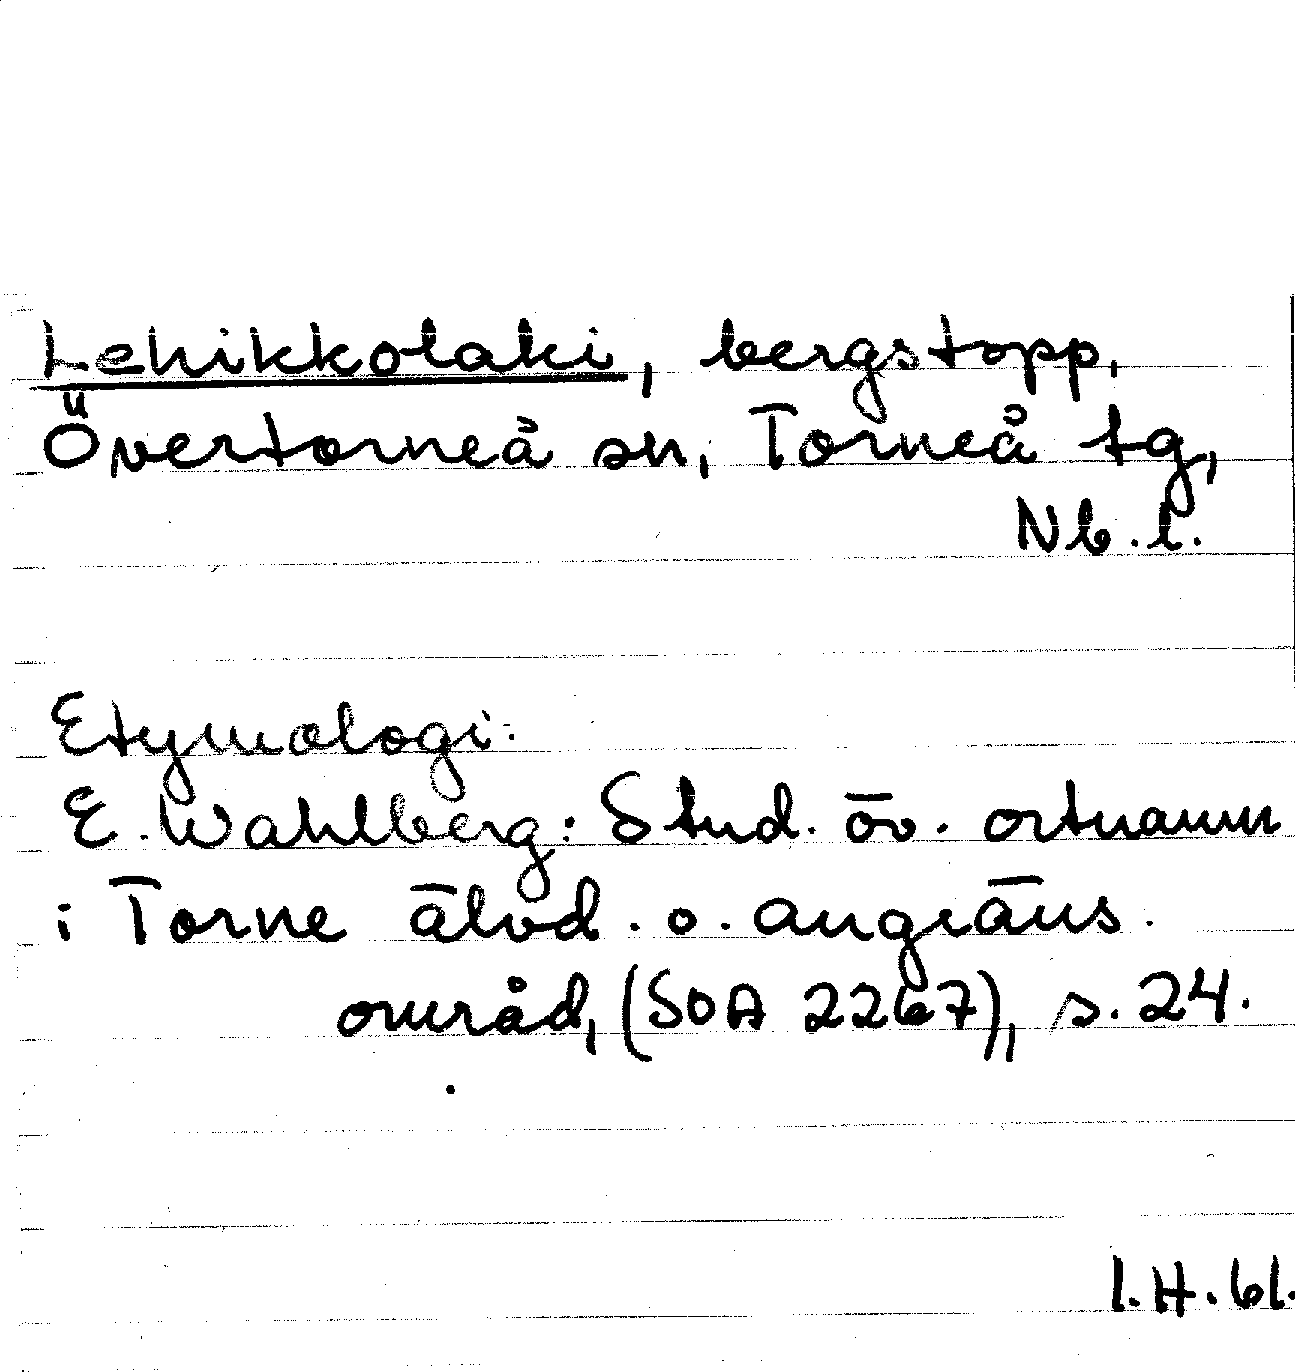 Lehikkolaki, bergstopp,
Övertorneå sn, Torneå tg,
Nb.l.
Etymologi:
E. Wahlberg: Stud. öv. ortnamn
i Torne älvd. o. angräns.
områd, (SOA 2267), s. 24.
I.H. 61.